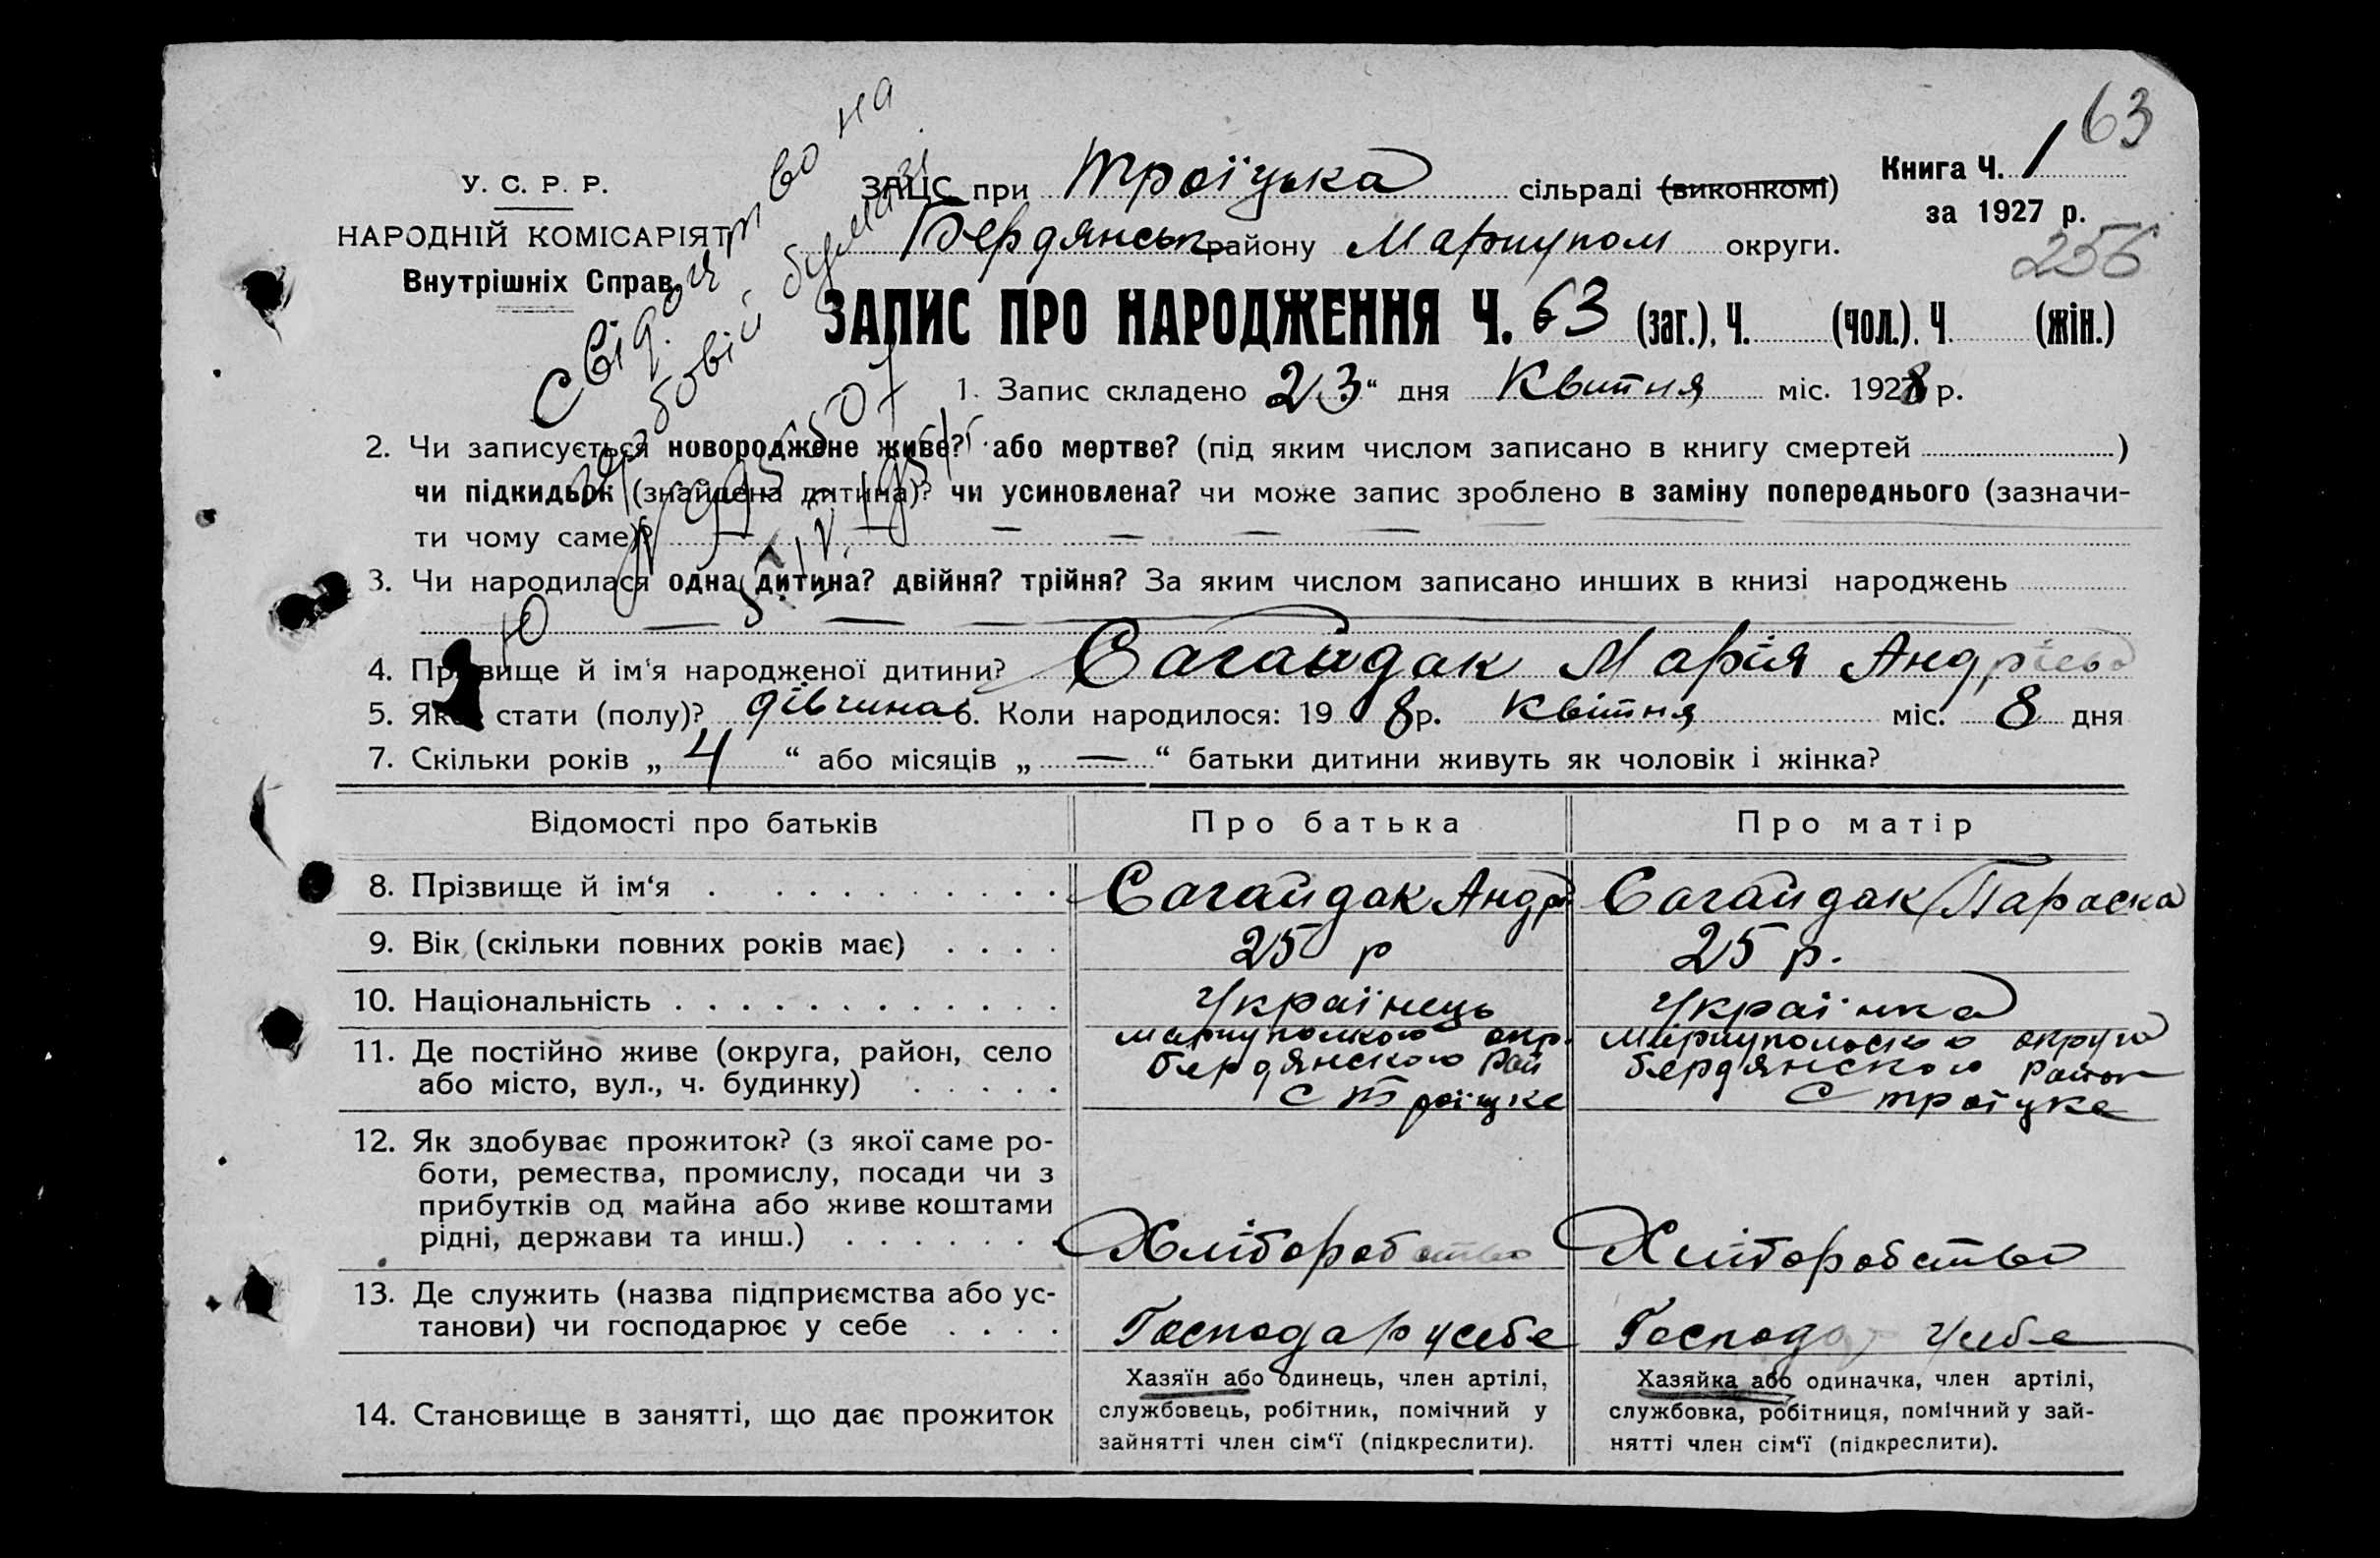 63
У. С. Р. Р.
НАРОДНІЙ КОМІСАРІЯТ
Внутрішніх Справ.
ЗАЦС при Троїцька сільраді (виконкомі)
Бердянськ району Мариупом округи.
Книга Ч. 1
за 1927 р.
256
Свідоцтво на
гербовій бумазі
ЗАПИС ПРО НАРОДЖЕННЯ Ч. 63 (заг.), Ч. (чол.). Ч. (жін.)
1. Запис складено 23 “ дня Квитня міс. 1928 р.
2. Чи записується новороджене живе? або мертве? (під яким числом записано в книгу смертей )
чи підкидьок (знайдена дитина)? чи усиновлена? чи може запис зроблено в заміну попереднього (зазначи-
ти чому саме)?
3. Чи народилася одна дитина? двійня? трійня? За яким числом записано инших в книзі народжень
4. Прізвище й ім'я народженої дитини? Сагайдак Марія Андрієва
5. Якої стати (полу)? дівчина 6. Коли народилося: 19 8 р. Квітня міс. 8 дня
7. Скільки років „ 4 “ або місяців „ — “ батьки дитини живуть як чоловік і жінка?
Відомості про батьків Про батька Про матір
8. Прізвище й ім‘я Сагайдак Андр Сагайдак Параска
9. Вік (скільки повних років має) 25 р 25 р.
10. Національність Українець Українка
11. Де постійно живе (округа, район, село
або місто, вул., ч. будинку)
окр.
Бердянского Рай
с Троїцке
округа
Бердянского район
с троїцке
12. Як здобуває прожиток? (з якої саме ро-
боти, ремества, промислу, посади чи з
прибутків од майна або живе коштами
рідні, держави та инш.) Хліборобство Хліборобство
13. Де служить (назва підприємства або ус-
танови) чи господарює у себе Господар усебе Господар усебе
14. Становище в занятті, що дає прожиток
Хазяїн або одинець, член артілі,
службовець, робітник, помічний у
зайнятті член сім‘ї (підкреслити).
Хазяйка або одиначка, член артілі,
службовка, робітниця, помічний у зай-
нятті член сім‘ї (підкреслити).